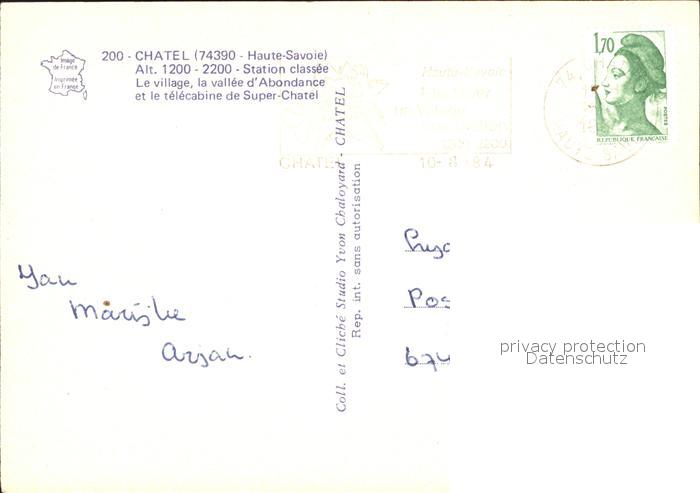 Image
de France
Imprimée
en France
200 - CHATEL (74390 - Haute-Savoie)
Alt. 1200 - 2200 - Station classée
Le village, la vallée d'Abondance
et le télécabine de Super-Chatel
Haute-Savoie
CHATEL
10-8-84
1,70
POSTES
REPUBLIQUE FRANÇAISE
Coll. et Cliché Studio Yvon Chaloyard - CHATEL
Rep. int. sans autorisation
Jan
Mariske
Arjan.
Pos
privacy protection
Datenschutz